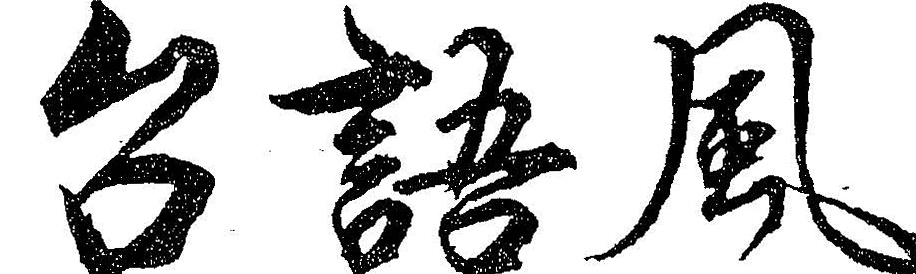 台語風